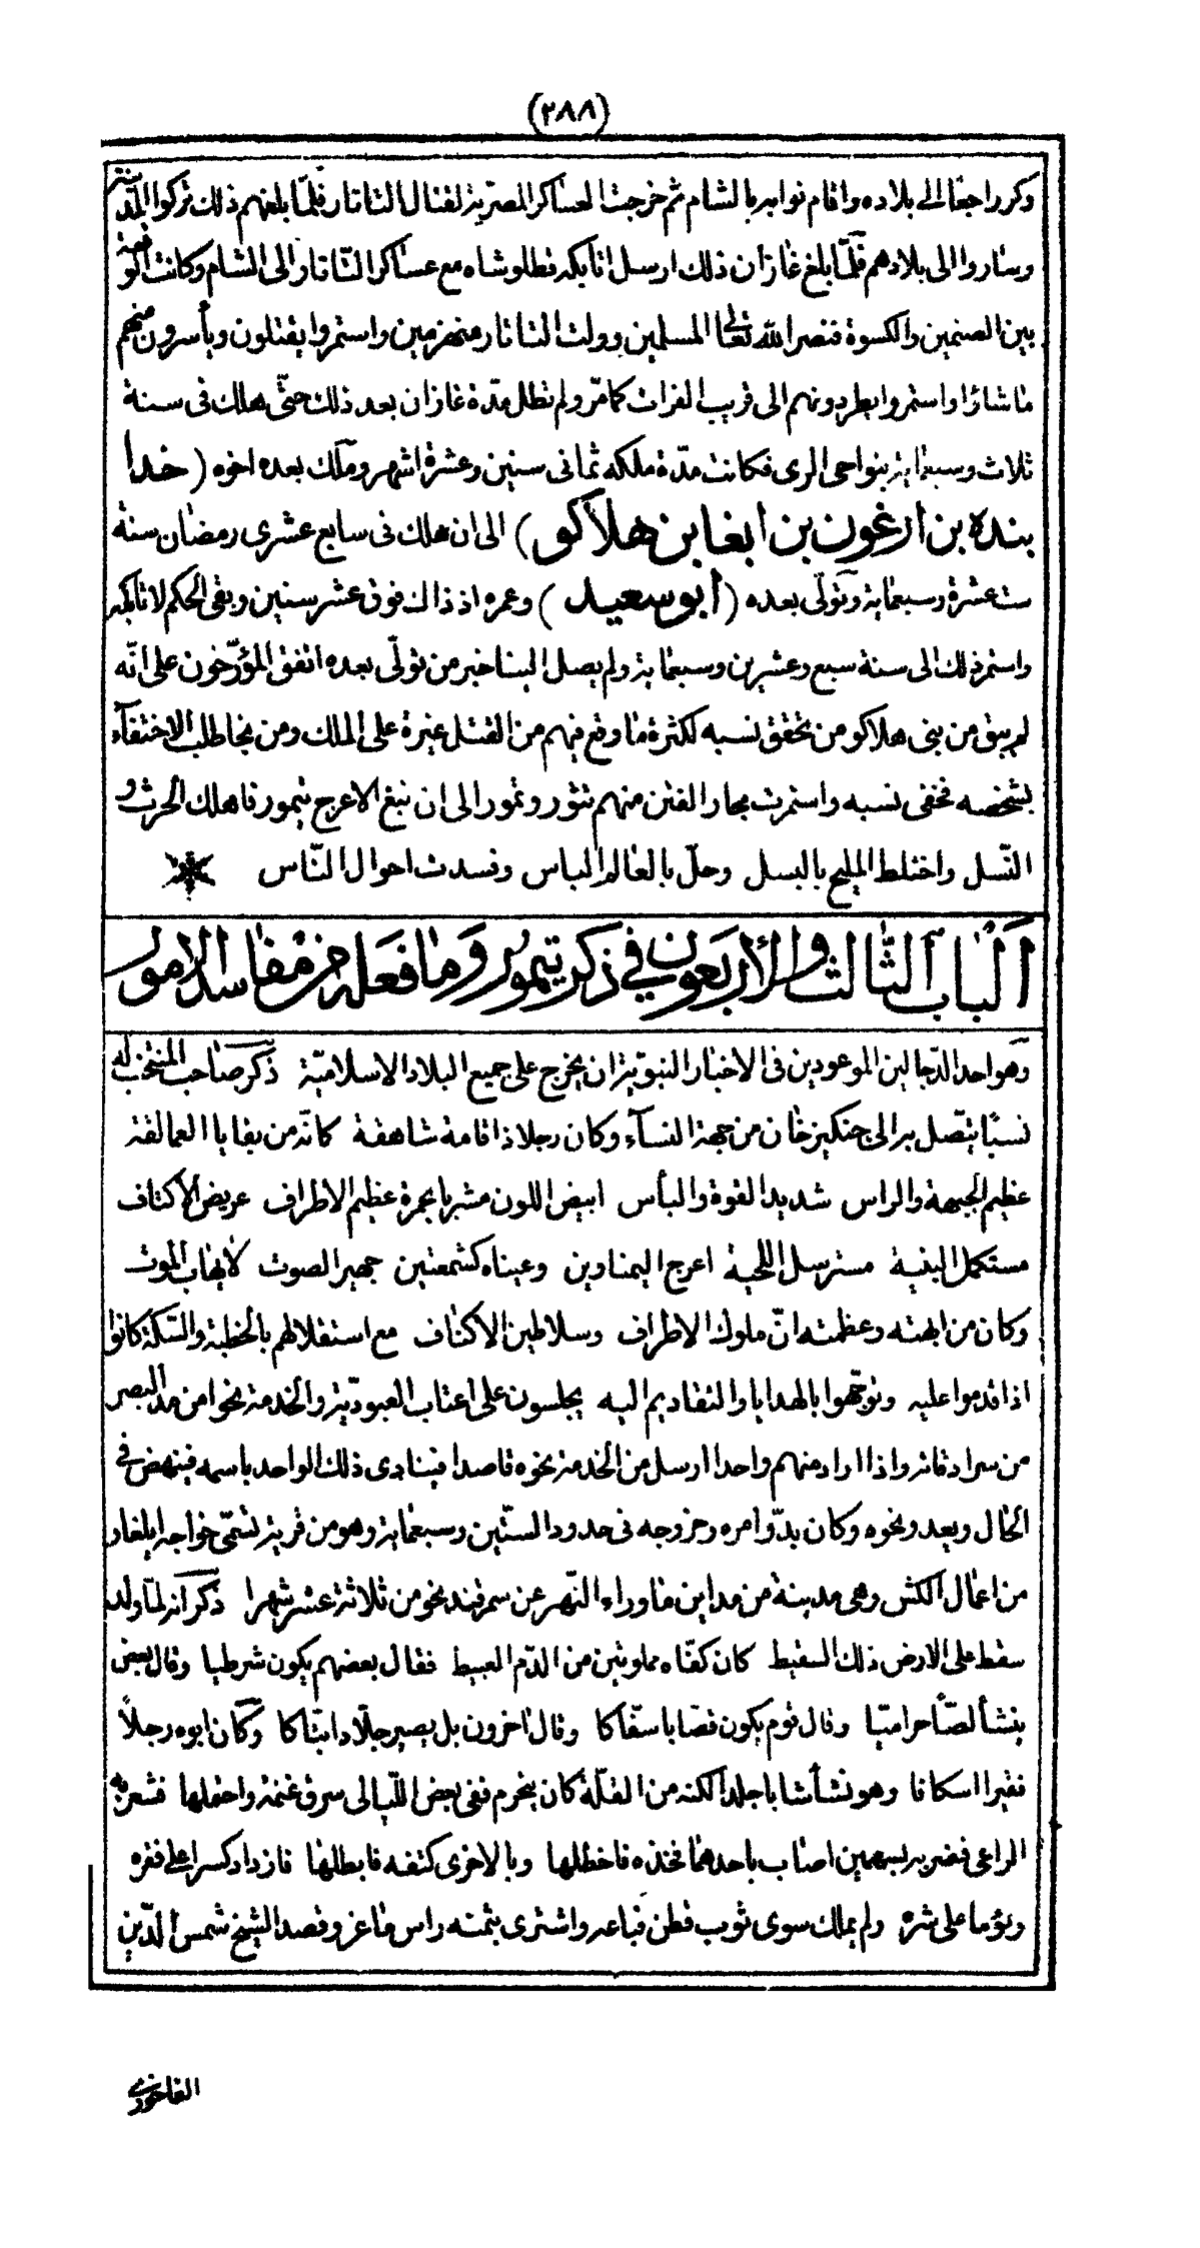 (٢٨٨)
وكر راجعا الى بلاده واقام نوابه بالشام ثم خرجت العساكر المصرية لقتال التاتار فلمّا بلغهم ذلك تركوا المدينة
وساروا الى بلادهم فلمّا بلغ غازان ذلك ارسل اتابكه قطلوشاه مع عساكر التاتار الى الشام وكانت الوقعة
بين الصنمين والكسوة فنصر الله تعالى المسلمين وولت التاتار منهزمين واستمروا يقتلون ويأسرون منهم
ما شاؤا واستمروا يطردونهم الى قريب الفرات كما مرّ ولم تطل مدّة غازان بعد ذلك حتّى هلك فى سنة
ثلاث وسبعماية بنواحى الرى فكانت مدّة ملكه ثمانى سنين وعشرة اشهر وملك بعده اخوه ( خدا
بنده بن أرغون بن أبغا بن هلاكو ) الى ان هلك فى سابع عشرى رمضان سنة
ست عشرة وسبعماية وتولّى بعده ( أبو سعيد ) وعمره اذ ذاك فوق عشر سنين وبقى الحكم لاتابكه
واستمر ذلك الى سنة سبع وعشرين وسبعماية ولم يصل الينا خبر من تولّى بعده اتفق المؤرّخون على انّه
لم يبق من بنى هلاكو من تحقق نسبه لكثرة ما وقع فيهم من القتل غيرة على الملك ومن نجا طلب الاختفآء
بشخصه فخفى نسبه واستمرت بحار الفتن منهم تثور وتمور الى ان نبغ الاعرج تيمور فاهلك الحرث و
النّسل واختلط المليح بالبسل وحلّ بالعالم الباس وفسدت احوال النّاس
اَلْبابُ الثّالث والأربَعون في ذكر تيمور وَمافعَله من مفاسد الامور
وهو احد الدّجالين الموعودين فى الاخبار النبويّة ان يخرج على جميع البلاد الاسلاميّة ذكر صاحب المنتخب له
نسبًا يتّصل به الى جنكيز خان من جهة النسآء وكان رجلا ذا قامة شاهقة كانّه من بقايا العمالقة
عظيم الجبهة والراس شديد القوة والبأس ابيض اللون مشربا بحمرة عظيم الاطراف عريض الاكتاف
مستكمل البنية مسترسل اللحية اعرج اليمناوين وعيناه كشمعتين جهير الصوت لا يهاب الموت
وكان من ابهته وعظمته انّ ملوك الاطراف وسلاطين الاكناف مع استقلالهم بالخطبة والسّكة كانوا
اذا قدموا عليه وتوجّهوا بالهدايا والتقاديم اليه يجلسون على اعتاب العبوديّة والخدمة نحوا من مدّ البصر
من سرادقاته واذا اراد منهم واحدا ارسل من الخدمة نحوه قاصدا فينادى ذلك الواحد باسمه فينهض فى
الحال ويعدو نحوه وكان بدّوامره وخروجه فى حدود الستّين وسبعماية وهو من قرية تسمّى خواجه ايلغار
من اعمال الكش وهى مدينة من مداين ماوراء النّهر عن سمرقند نحو من ثلاثة عشر شهرا ذكر انه لمّا ولد
سقط على الارض ذلك السقيط كان كفّاه مملوئين من الدّم العبيط فقال بعضهم يكون شرطيا وقال بعض
ينشأ لصّا حراميّا وقال قوم يكون قصّابا سفّاكا وقال اخرون بل يصير جلّادا بتّاكا وكان ابوه رجلاً
فقيرا اسكافا وهو نشأ شابا جلدا لكنه من القلّة كان يتحرم ففى بعض اللّيالى سرق غنمة واحتملها فشعر به
الراعى فضربه بسهمين اصاب باحدهما فخذه فاخطلها وبالاخرى كتفه فابطلها فازداد كسرا على فقره
ولؤما على شره ولم يملك سوى ثوب قطن فباعه واشترى بثمنه راس ماعز وقصد الشيخ شمس الدّين
الفاخورى